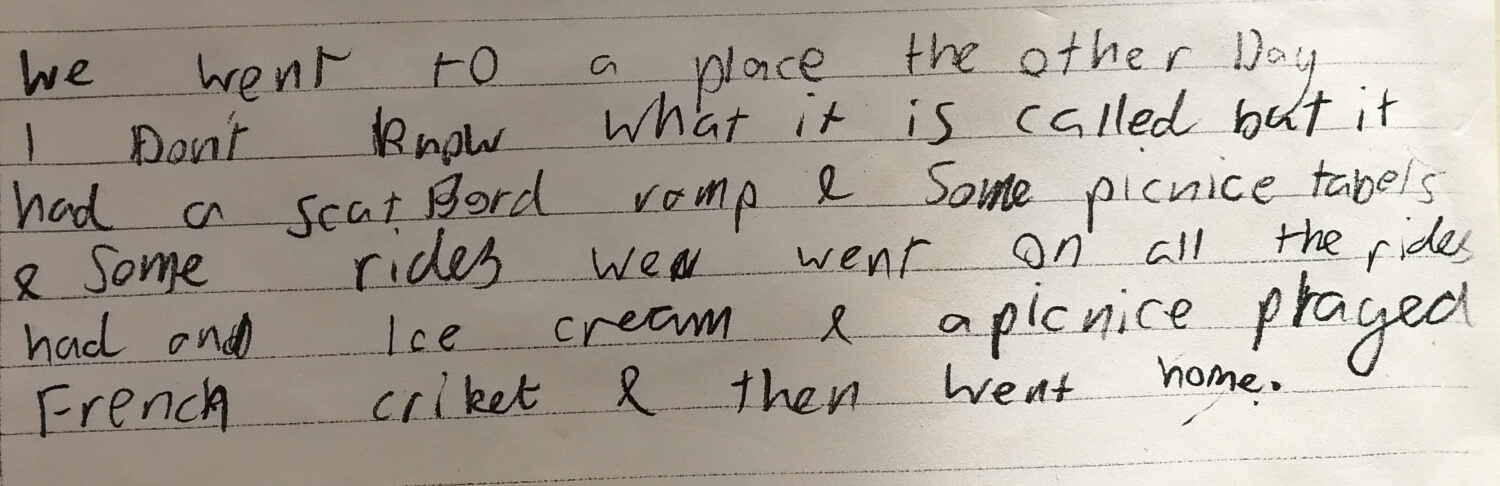 We went to a place the other Day
I Don't know what it is called but it
had a scat Bord ramp & Some picnice tabels
& Some rides we went on all the rides
had and Ice cream & a picnice played
French criket & then went home.